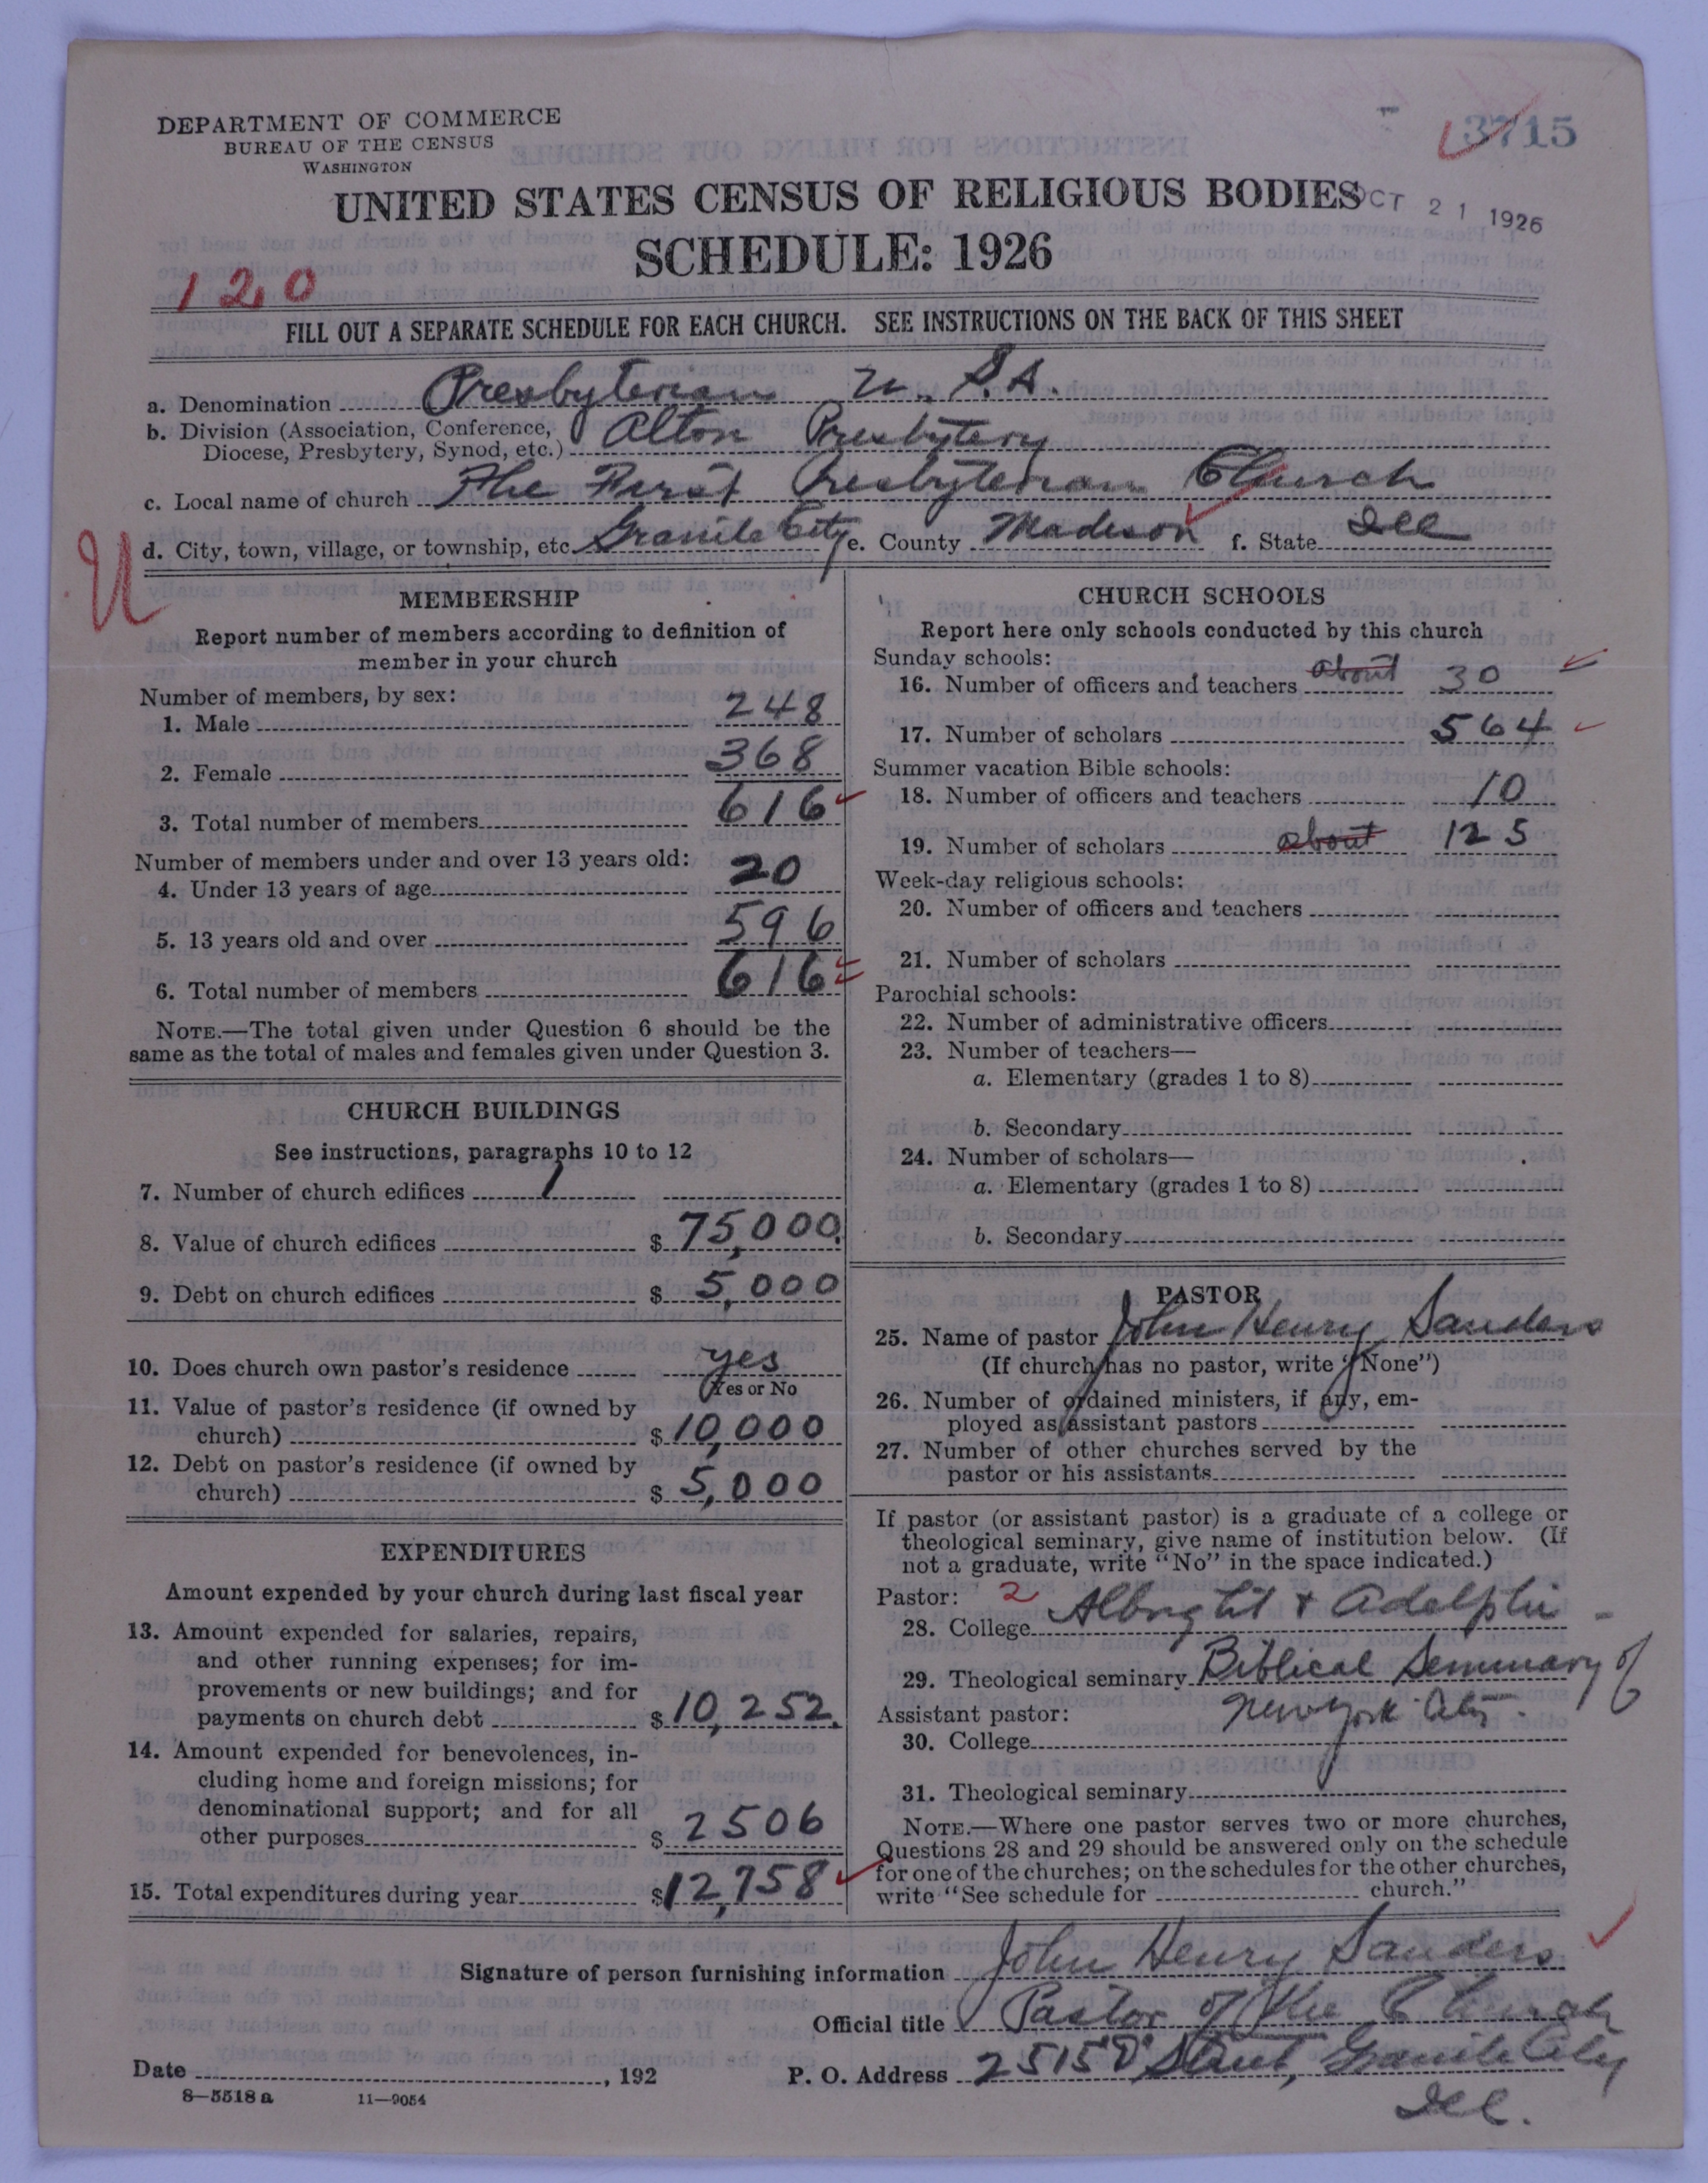 DEPARTMENT OF COMMERCE
BUREAU OF THE CENSUS
WASHINGTON
3715
UNITED STATES CENSUS OF RELIGIOUS BODIES
OCT 21 1926
SCHEDULE: 1926
120
FILL OUT A SEPARATE SCHEDULE FOR EACH CHURCH. SEE INSTRUCTIONS ON THE BACK OF THIS SHEET
a. Denomination Presbyterian U. S. A.
b. Division (Association, Conference, Diocese, Presbytery, Synod, etc.) Alton Presbytery
c. Local name of church The First Presbyterian Church
d. City, town, village, or township, etc. Granite City e. County Madison f. State Ill
U
MEMBERSHIP
Report number of members according to definition of
member in your church
Number of members, by sex:
1. Male 248
2. Female 368
3. Total number of members 616
Number of members under and over 13 years old:
4. Under 13 years of age 20
5. 13 years old and over 596
6. Total number of members 616
NOTE.—The total given under Question 6 should be the
same as the total of males and females given under Question 3.
CHURCH BUILDINGS
See instructions, paragraphs 10 to 12
7. Number of church edifices 1
8. Value of church edifices $ 75,000.
9. Debt on church edifices $ 5,000
10. Does church own pastor's residence yes
Yes or No
11. Value of pastor's residence (if owned by
church) $ 10,000
12. Debt on pastor's residence (if owned by
church) $ 5,000
EXPENDITURES
Amount expended by your church during last fiscal year
13. Amount expended for salaries, repairs,
and other running expenses; for im-
provements or new buildings; and for
payments on church debt $ 10,252.
14. Amount expended for benevolences, in-
cluding home and foreign missions; for
denominational support; and for all
other purposes $ 2506
15. Total expenditures during year $ 12,758
CHURCH SCHOOLS
Report here only schools conducted by this church
Sunday schools:
16. Number of officers and teachers about 30
17. Number of scholars 564
Summer vacation Bible schools:
18. Number of officers and teachers 10
19. Number of scholars about 125
Week-day religious schools:
20. Number of officers and teachers
21. Number of scholars
Parochial schools:
22. Number of administrative officers
23. Number of teachers—
a. Elementary (grades 1 to 8)
b. Secondary
24. Number of scholars—
a. Elementary (grades 1 to 8)
b. Secondary
PASTOR
25. Name of pastor John Henry Sanders
(If church has no pastor, write "None")
26. Number of ordained ministers, if any, em-
ployed as assistant pastors
27. Number of other churches served by the
pastor or his assistants
If pastor (or assistant pastor) is a graduate of a college or
theological seminary, give name of institution below. (If
not a graduate, write "No" in the space indicated.)
Pastor: 2
28. College Albright + Adelphi
29. Theological seminary Biblical Seminary of
New York City.
Assistant pastor:
30. College
31. Theological seminary
NOTE.—Where one pastor serves two or more churches,
Questions 28 and 29 should be answered only on the schedule
for one of the churches; on the schedules for the other churches,
write "See schedule for church."
Signature of person furnishing information John Henry Sanders
Official title Pastor of the Church
Date , 192 P. O. Address 2515 D Street, Granite City
Ill.
8—5518 a 11—9054